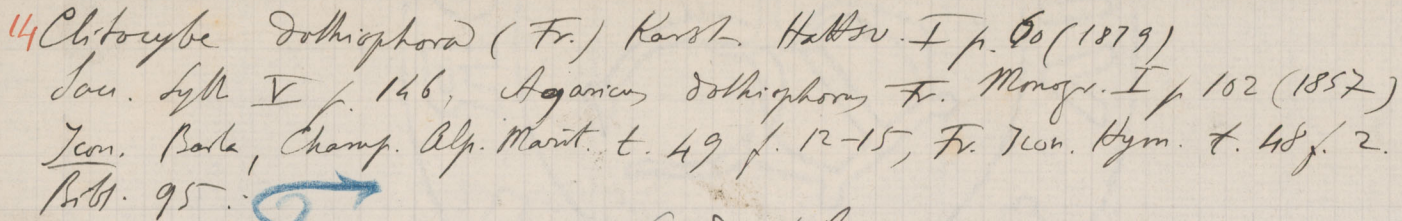 14 Clitocybe dothiophora (Fr.) Karst. Hattsv. I p. 60 (1879)
Sacc. Syll V p. 146, Agaricus dothiophorus Fr. Monogr. I p 102 (1857)
Icon. Barla, Champ. Alp. Marit. t. 49 f. 12-15, Fr. Icon. Hym. t. 48 f. 2.
Bibl. 95.